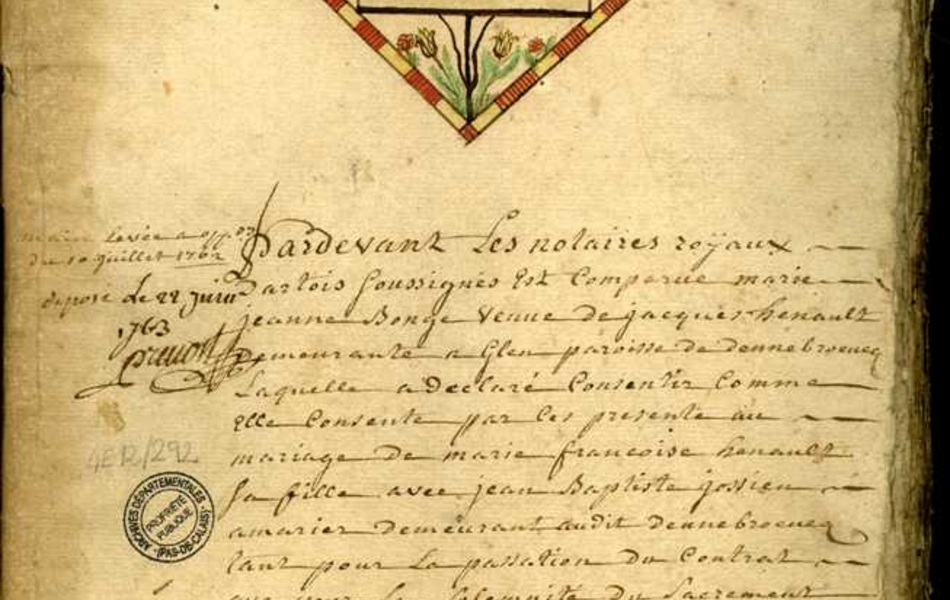 main levée
du 10 juillet 1762
deposé le 22 juin
1763
4E12/292
ARCHIVES DÉPARTEMENTALES
PROPRIÉTÉ
PUBLIQUE
(PAS-DE-CALAIS)
Pardevant Les notaires roÿaux
Dartois soussignés Est Comparue marie
jeanne Bonge veuve de jacques henault
Demeurante a Glen paroisse de dennebroeucq
Laquelle a declaré Consentir Comme
Elle Consente par Ces presente au
mariage de marie francoise henault
sa fille avec jean Baptiste jossien
amarier demeurant audit dennebroeucq
tant pour La passation du Contrat
que pour la solemnité du Sacrement